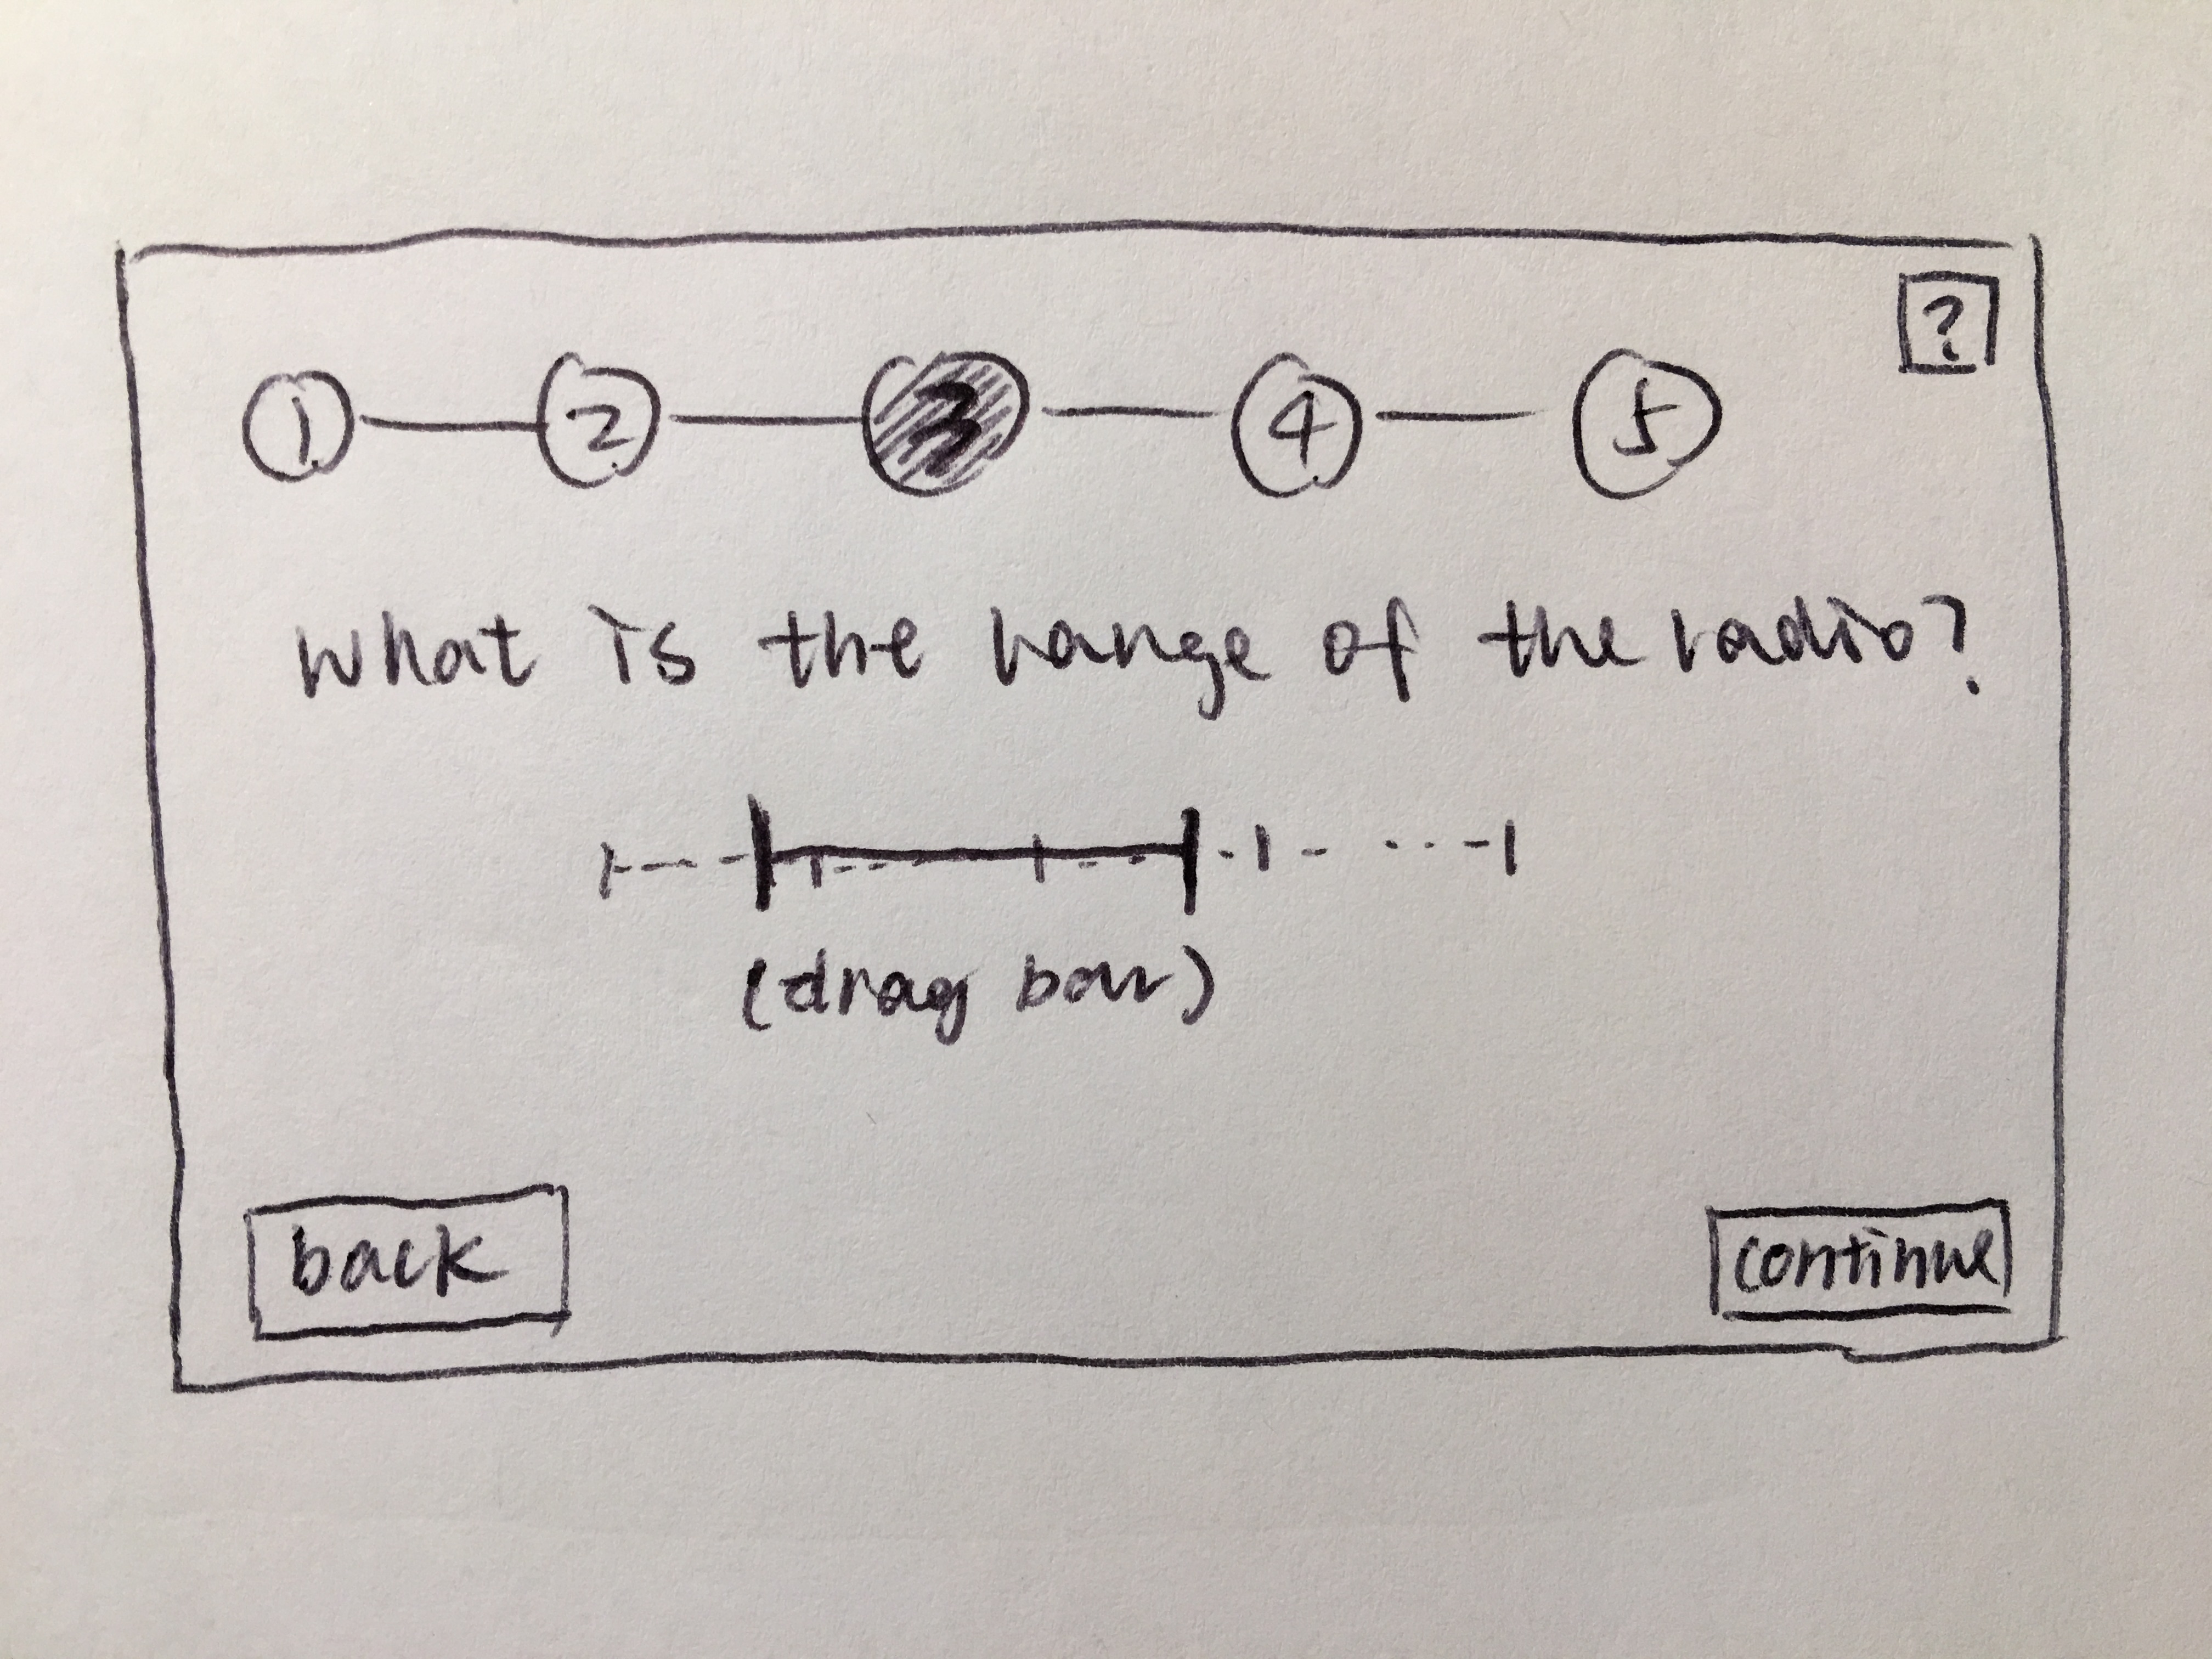 ?
1 2 3 4 5
What is the range of the radio?
(drag bar)
back
continue